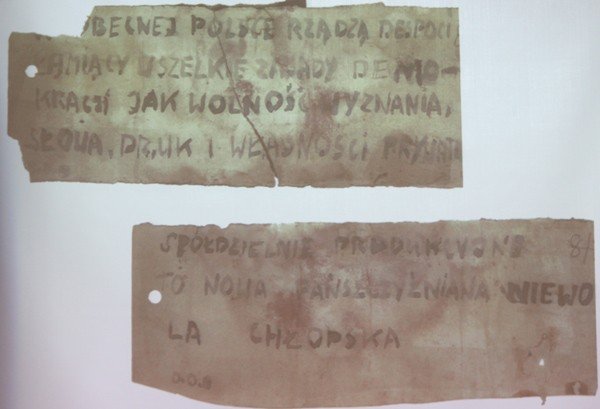 W OBECNEJ POLSCE RZĄDZĄ DESPOCI
ŁAMIĄCY WSZELKIE ZASADY DEMO-
KRACJI JAK WOLNOŚĆ WYZNANIA,
SŁOWA, DRUK I WŁASNOŚCI PRYWATN
SPÓŁDZIELNIE PRODUKCYJNE 81
TO NOWA PAŃSZCZYŹNIANA NIEWO
LA CHŁOPSKA